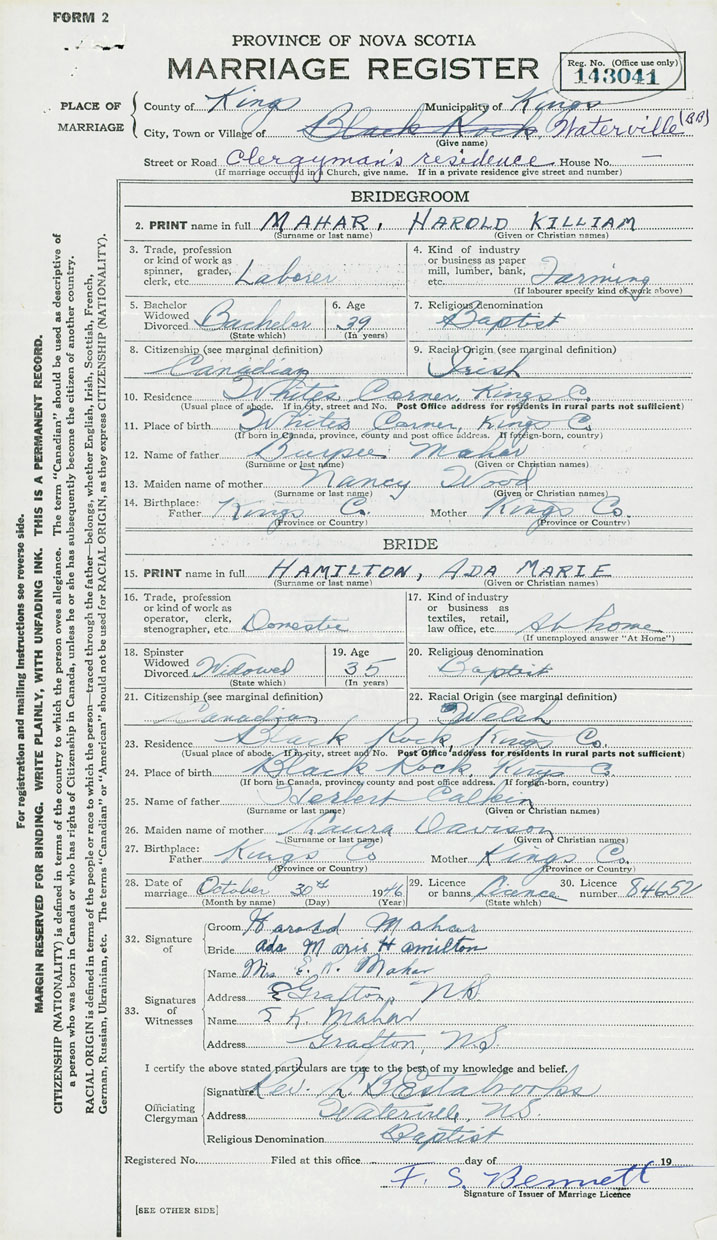 FORM 2
PROVINCE OF NOVA SCOTIA
MARRIAGE REGISTER
Reg. No. (Office use only)
143041
PLACE OF MARRIAGE
County of Kings Municipality of Kings
City, Town or Village of Black Rock, Waterville (BB)
(Give name)
Street or Road Clergyman's residence House No. —
(If marriage occurred in a Church, give name. If in a private residence give street and number)
BRIDEGROOM
2. PRINT name in full MAHAR, HAROLD KILLIAM
(Surname or last name) (Given or Christian names)
3. Trade, profession or kind of work as spinner, grader, clerk, etc. Laborer
4. Kind of industry or business as paper mill, lumber, bank, etc. Farming
(If labourer specify kind of work above)
5. Bachelor Widowed Divorced Bachelor
(State which)
6. Age 39
(In years)
7. Religious denomination Baptist
8. Citizenship (see marginal definition) Canadian
9. Racial Origin (see marginal definition) Irish
10. Residence Whites Corner, Kings C.
(Usual place of abode. If in city, street and No. Post Office address for residents in rural parts not sufficient)
11. Place of birth Whites Corner, Kings C.
(If born in Canada, province, county and post office address. If foreign-born, country)
12. Name of father Burpee Mahar
(Surname or last name) (Given or Christian names)
13. Maiden name of mother Nancy Wood
(Surname or last name) (Given or Christian names)
14. Birthplace: Father Kings C. Mother Kings Co.
(Province or Country) (Province or Country)
BRIDE
15. PRINT name in full HAMILTON, ADA MARIE
(Surname or last name) (Given or Christian names)
16. Trade, profession or kind of work as operator, clerk, stenographer, etc. Domestic
17. Kind of industry or business as textiles, retail, law office, etc. At home
(If unemployed answer "At Home")
18. Spinster Widowed Divorced Widowed
(State which)
19. Age 35
(In years)
20. Religious denomination Baptist
21. Citizenship (see marginal definition) Canadian
22. Racial Origin (see marginal definition) Welsh
23. Residence Black Rock, Kings Co.
(Usual place of abode. If in city, street and No. Post Office address for residents in rural parts not sufficient)
24. Place of birth Black Rock, Kings C.
(If born in Canada, province, county and post office address. If foreign-born, country)
25. Name of father Herbert Calkin
(Surname or last name) (Given or Christian names)
26. Maiden name of mother Laura Davison
(Surname or last name) (Given or Christian names)
27. Birthplace: Father Kings Co Mother Kings Co.
(Province or Country) (Province or Country)
28. Date of marriage October 30th 1946
(Month by name) (Day) (Year)
29. Licence or banns Licence
(State which)
30. Licence number 84652
32. Signature of
Groom Harold Mahar
Bride Ada Marie Hamilton
33. Signatures of Witnesses
Name Mrs. E. K. Mahar
Address Grafton, N.S.
Name E K. Mahar
Address Grafton, N.S.
I certify the above stated particulars are true to the best of my knowledge and belief.
Officiating Clergyman
Signature Rev. L B Estabrooks
Address Waterville, N.S.
Religious Denomination Baptist
Registered No. Filed at this office day of 19
F. S. Bennett
Signature of Issuer of Marriage Licence
[SEE OTHER SIDE]
For registration and mailing instructions see reverse side.
MARGIN RESERVED FOR BINDING. WRITE PLAINLY, WITH UNFADING INK. THIS IS A PERMANENT RECORD.
CITIZENSHIP (NATIONALITY) is defined in terms of the country to which the person owes allegiance. The term "Canadian" should be used as descriptive of
a person who was born in Canada or who has rights of Citizenship in Canada, unless he or she has subsequently become the citizen of another country.
RACIAL ORIGIN is defined in terms of the people or race to which the person—traced through the father—belongs, whether English, Irish, Scottish, French,
German, Russian, Ukrainian, etc. The terms "Canadian" or "American" should not be used for RACIAL ORIGIN, as they express CITIZENSHIP (NATIONALITY).